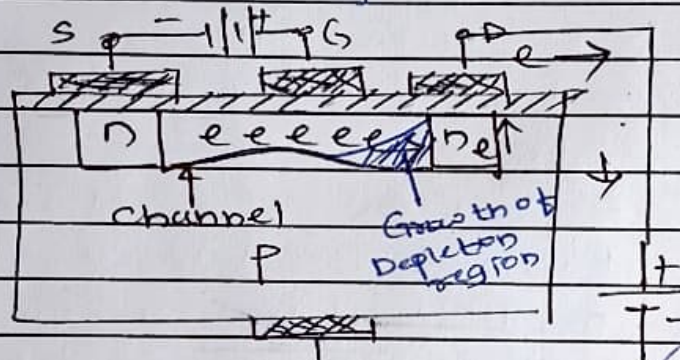 S - + G D
e →
n e e e e e n e ↑
↓
channel
Growth of
Depletion
region
P
+
-